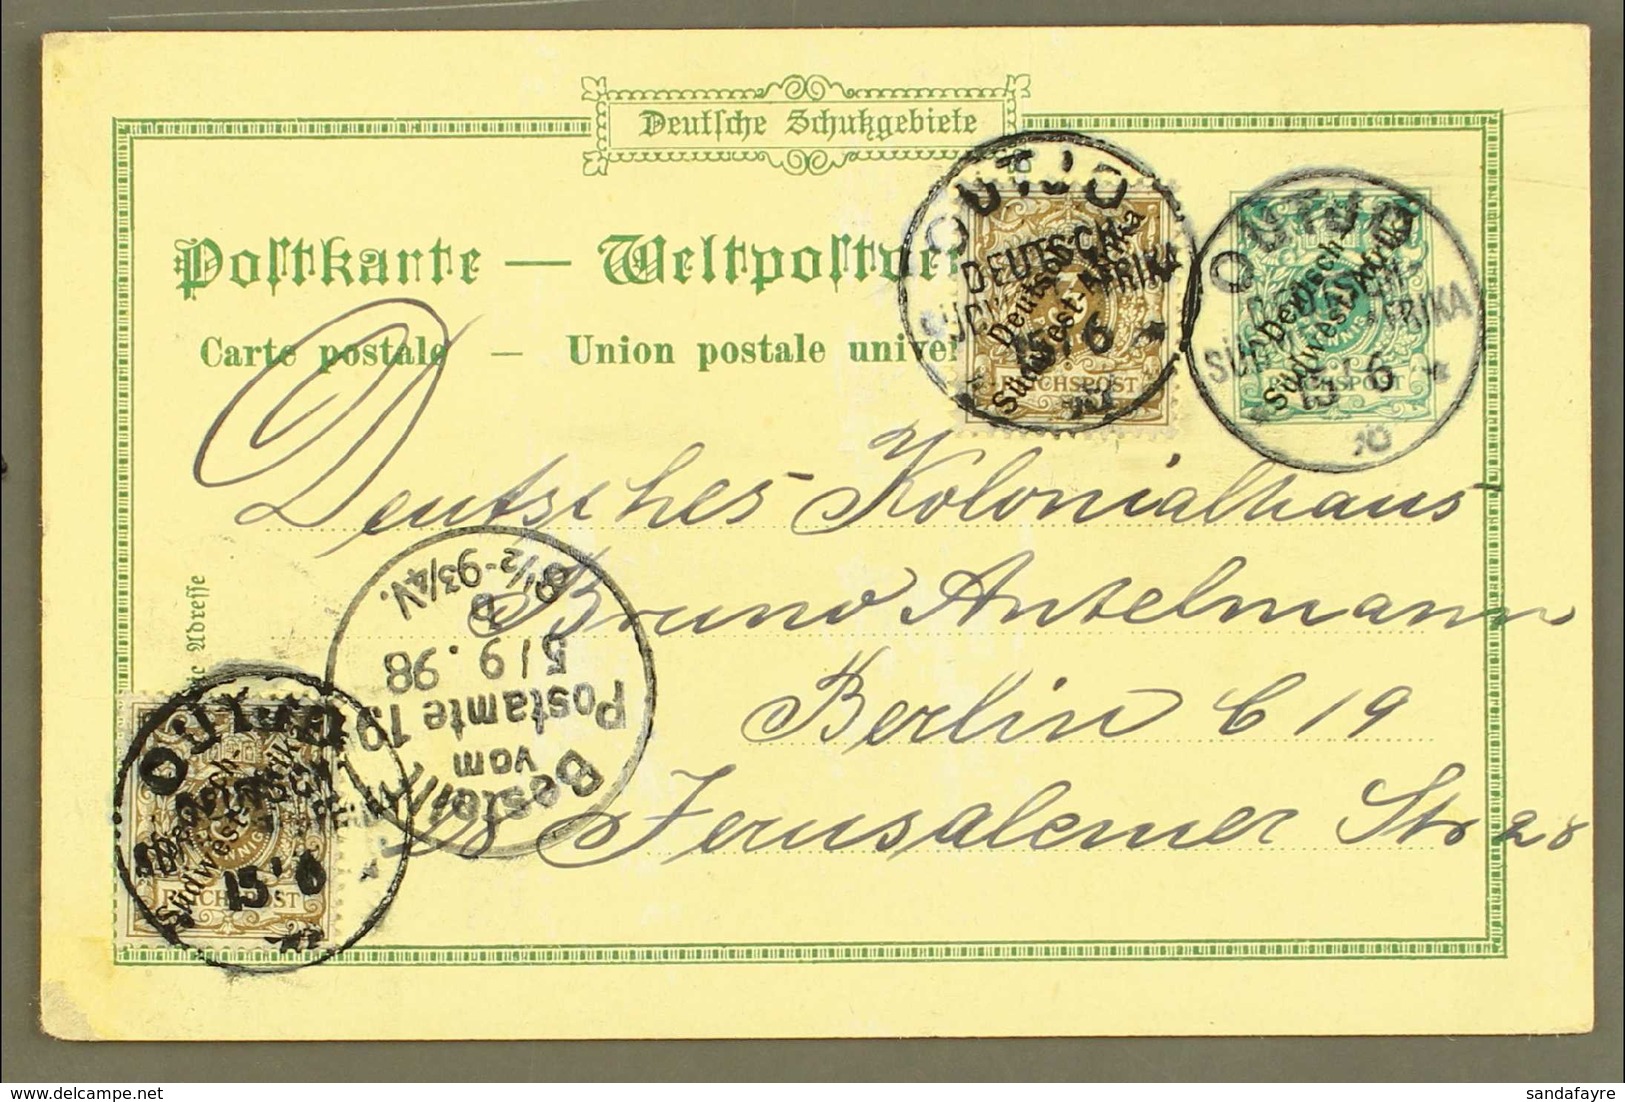 Deutsche Schutzgebiete
Postkarte — Weltpostver
Carte postale — Union postale univer
OUTJO
DEUTSCH
SÜDWEST AFRIKA
15/6
Deutsch-
Südwest-Afrika
REICHSPOST
OUTJO
SÜDWEST AFRIKA
15/6
Deutsch-
Südwest-Afrika
REICHSPOST
Deutsches Kolonialhaus
Bruno Antelmann
Berlin C 19
Jerusalemer Str 28
Adresse
Bestellt
vom
Postamte 19
5/9.98
8½-9¾V.
OUTJO
15/6
Deutsch-
Südwest-Afrika
REICHSPOST
sandafayre